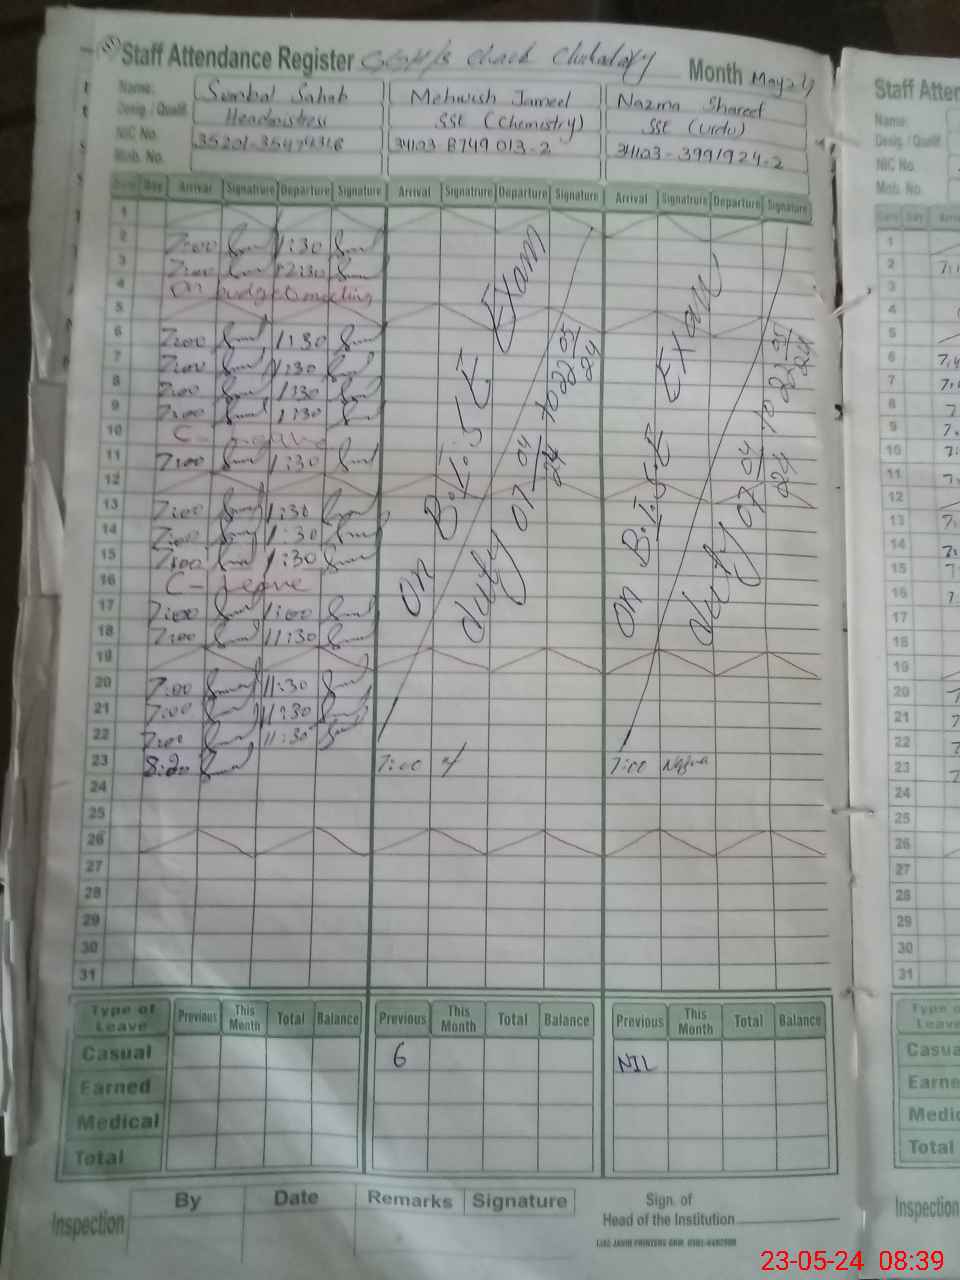 Staff Attendance Register
Month May 24
Name: Sumbal Sahab Mehwish Jameel Nazma Shareef
Desig / Qualif. Headmistress SSE (Chemistry) SSE (Urdu)
NIC No. 34103-3991924-2
Mob. No.
Date Day Arrival Signatrure Departure Signature Arrival Signatrure Departure Signature Arrival Signatrure Departure Signature
1
2 7:00 1:30
3 7:00 12:30
4 On budget meeting
5
6 7:00 1:30
7 7:00 1:30
8 7:00 1:30
9 7:00 1:30
10 C-
11 7:00 1:30
12
13 7:00 1:30
14 7:00 1:30
15 7:00 1:30
16 C- Leave
17 7:00 1:00
18 7:00 11:30
19
20 7:00 11:30
21 7:00 11:30
22 7:00 11:30
23 8:20 7:00 7:00 Nazma
24
25
26
27
28
29
30
31
On B.I.S.E Exam
duty 07 04/24 to 22 05/24
On B.I.S.E Exam
duty 07 04/24 to 22 05/24
Type of Leave Previous This Month Total Balance Previous This Month Total Balance Previous This Month Total Balance
Casual 6 NIL
Earned
Medical
Total
Inspection By Date Remarks Signature
Sign. of
Head of the Institution
Staff Atten
Name:
Desig / Qualif
NIC No.
Mob. No.
Date Day
1
2
3
4
5
6
7
8
9
10
11
12
13
14
15
16
17
18
19
20
21
22
23
24
25
26
27
28
29
30
31
Casua
Earne
Medic
Total
Inspection
23-05-24 08:39